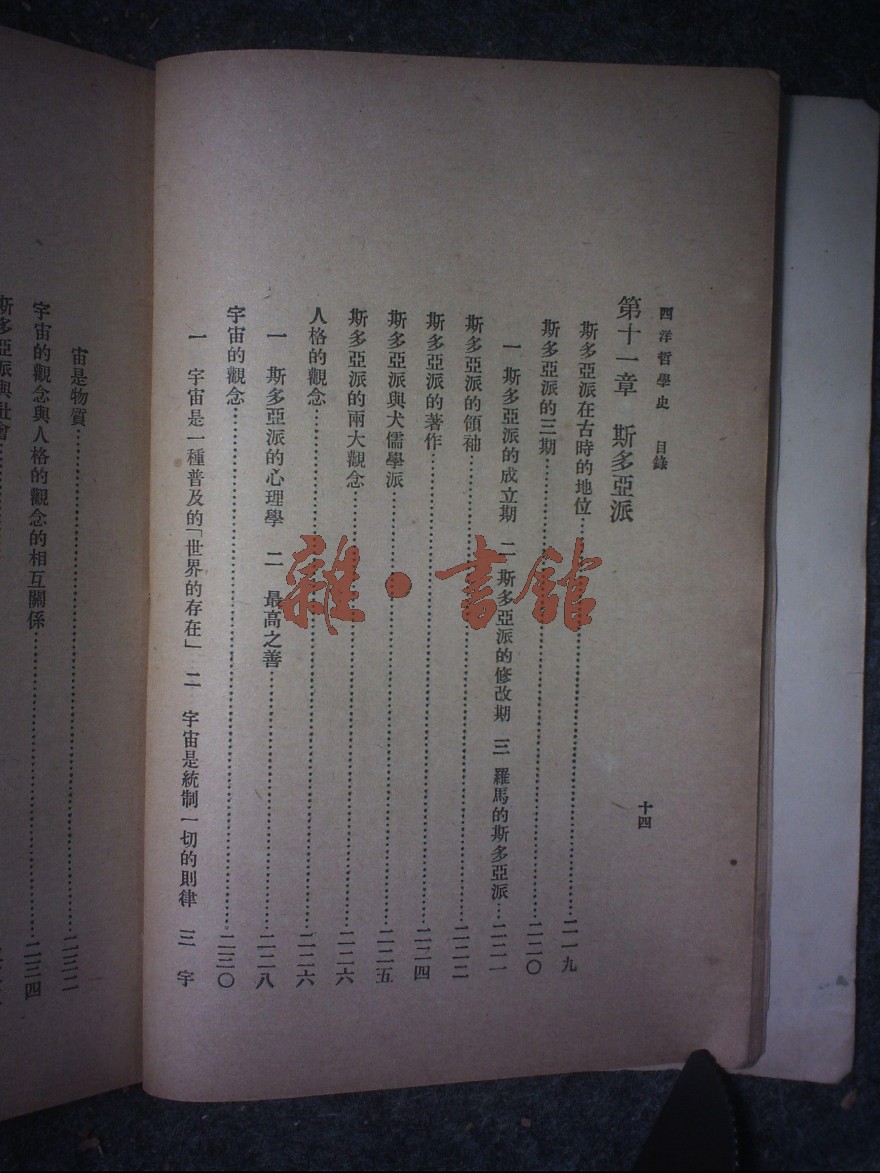 西洋哲學史　目錄
十四
第十一章　斯多亞派
斯多亞派在古時的地位……二一九
斯多亞派的三期……二二〇
一　斯多亞派的成立期　二　斯多亞派的修改期　三　羅馬的斯多亞派……二二一
斯多亞派的領袖……二二二
斯多亞派的著作……二二四
斯多亞派與犬儒學派……二二五
斯多亞派的兩大觀念……二二六
人格的觀念……二二六
一　斯多亞派的心理學　二　最高之善……二二八
宇宙的觀念……二三〇
一　宇宙是一種普及的「世界的存在」　二　宇宙是統制一切的則律　三　宇
宙是物質……二三二
宇宙的觀念與人格的觀念的相互關係……二三四
斯多亞派與社會
雜·書館